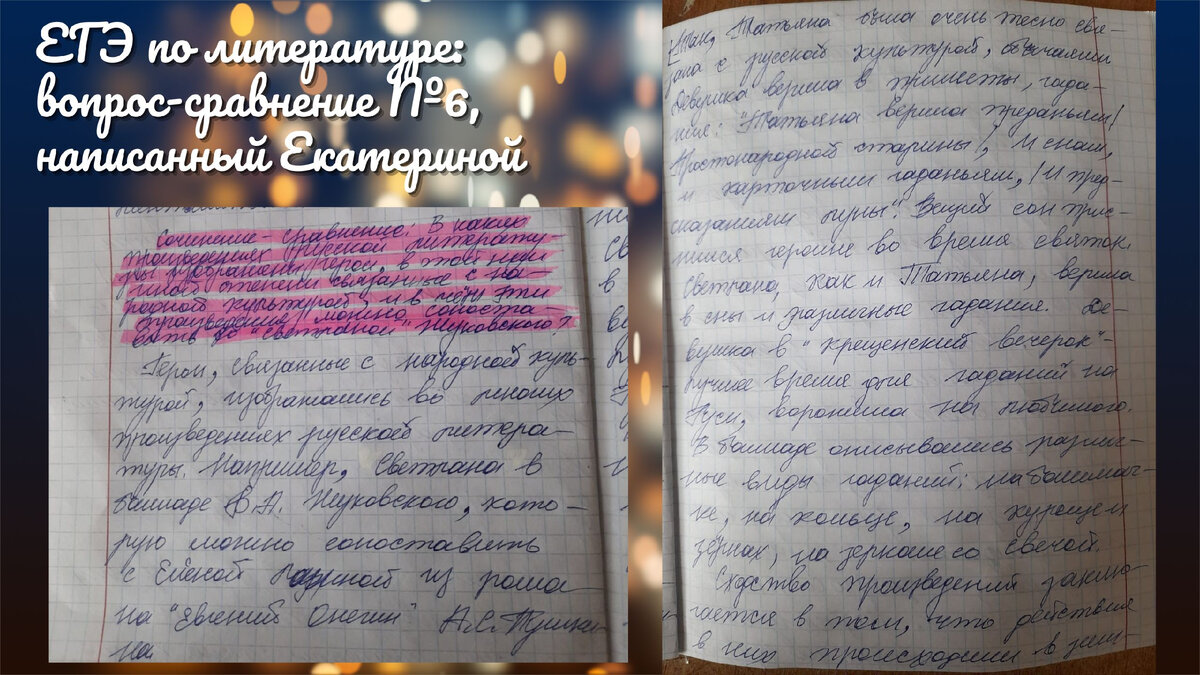 ЕГЭ по литературе:
вопрос-сравнение №6,
написанный Екатериной
Сочинение-сравнение: В каких
произведениях русской литерату-
ры изображены герои, в той или
иной степени связанные с на-
родной культурой, и в чём эти
произведения можно сопоста-
вить со "Светланой" Жуковского?
Герои, связанные с народной куль-
турой, изображались во многих
произведениях русской литера-
туры. Например, Светлана в
балладе В.А. Жуковского, кото-
рую можно сопоставить
с Лариной из рома
на "Евгений Онегин" А.С. Пушки
на
Так, Татьяна была очень тесно свя-
зана с русской культурой, обычаями
Девушка верила в приметы, гада-
ния: "Татьяна верила преданьям/
Простонародной старины/, И снам,
и карточным гаданьям,/ И пред-
сказаниям луны". Вещий сон прис-
нился героине во время святок.
Светлана, как и Татьяна, верила
в сны и различные гадания. Де-
вушка в "крещенский вечерок"-
лучшее время для гаданий на
Руси, ворожила на любимого.
В балладе описывались различ-
ные виды гаданий: на башмач-
ке, на кольце, на курицем
зёрнах, на зеркале со свечой.
Сходство произведений заклю-
чается в том, что действия
в них происходили в зим-